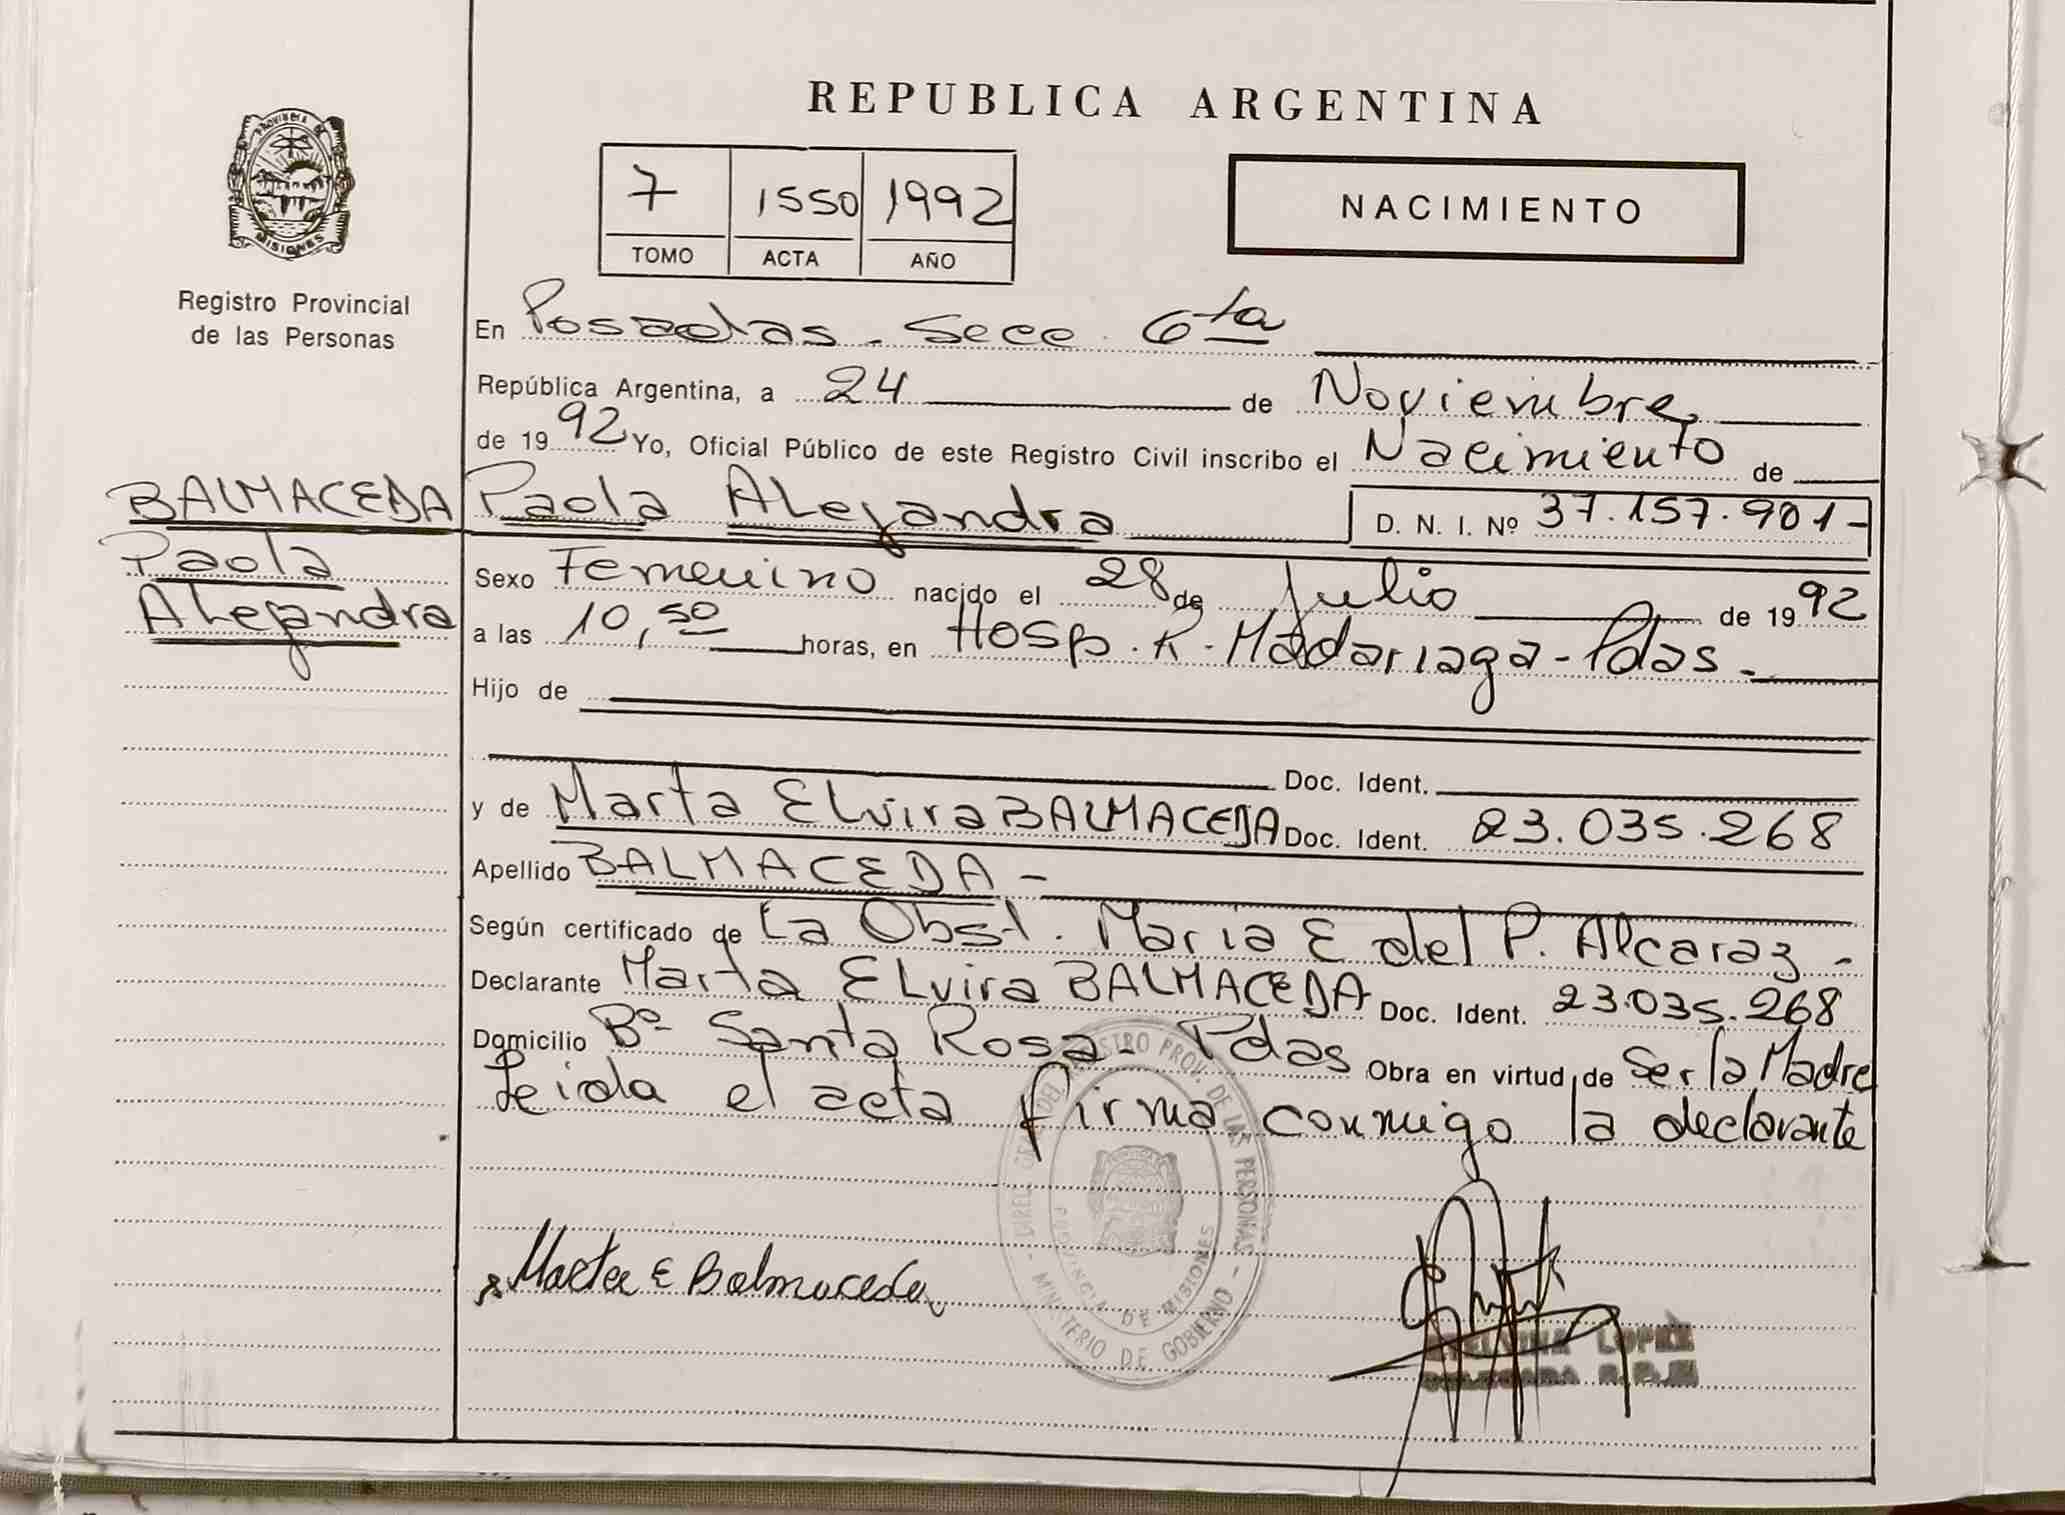 REPUBLICA ARGENTINA
PROVINCIA DE
MISIONES
Registro Provincial
de las Personas
7 1550 1992
TOMO ACTA AÑO
NACIMIENTO
En Posadas - Secc. 6ta
República Argentina, a 24 de Noviembre
de 1992 Yo, Oficial Público de este Registro Civil inscribo el Nacimiento de
BALMACEDA Paola Alejandra D. N. I. Nº 37.157.901-
Paola
Alejandra
Sexo Femenino nacido el 28 de Julio de 1992
a las 10,50 horas, en Hosp. R. Madariaga - Pdas -
Hijo de
Doc. Ident.
y de Marta Elvira BALMACEDA Doc. Ident. 23.035.268
Apellido BALMACEDA -
Según certificado de La Obst. Maria E del P. Alcaraz -
Declarante Marta Elvira BALMACEDA Doc. Ident. 23.035.268
Domicilio Bº Santa Rosa - Pdas Obra en virtud de Ser la Madre
Leida el acta firma conmigo la declarante
REGISTRO PROV. DE LAS PERSONAS
PROVINCIA DE MISIONES
- MINISTERIO DE GOBIERNO -
x Marta E Balmaceda
LOPEZ